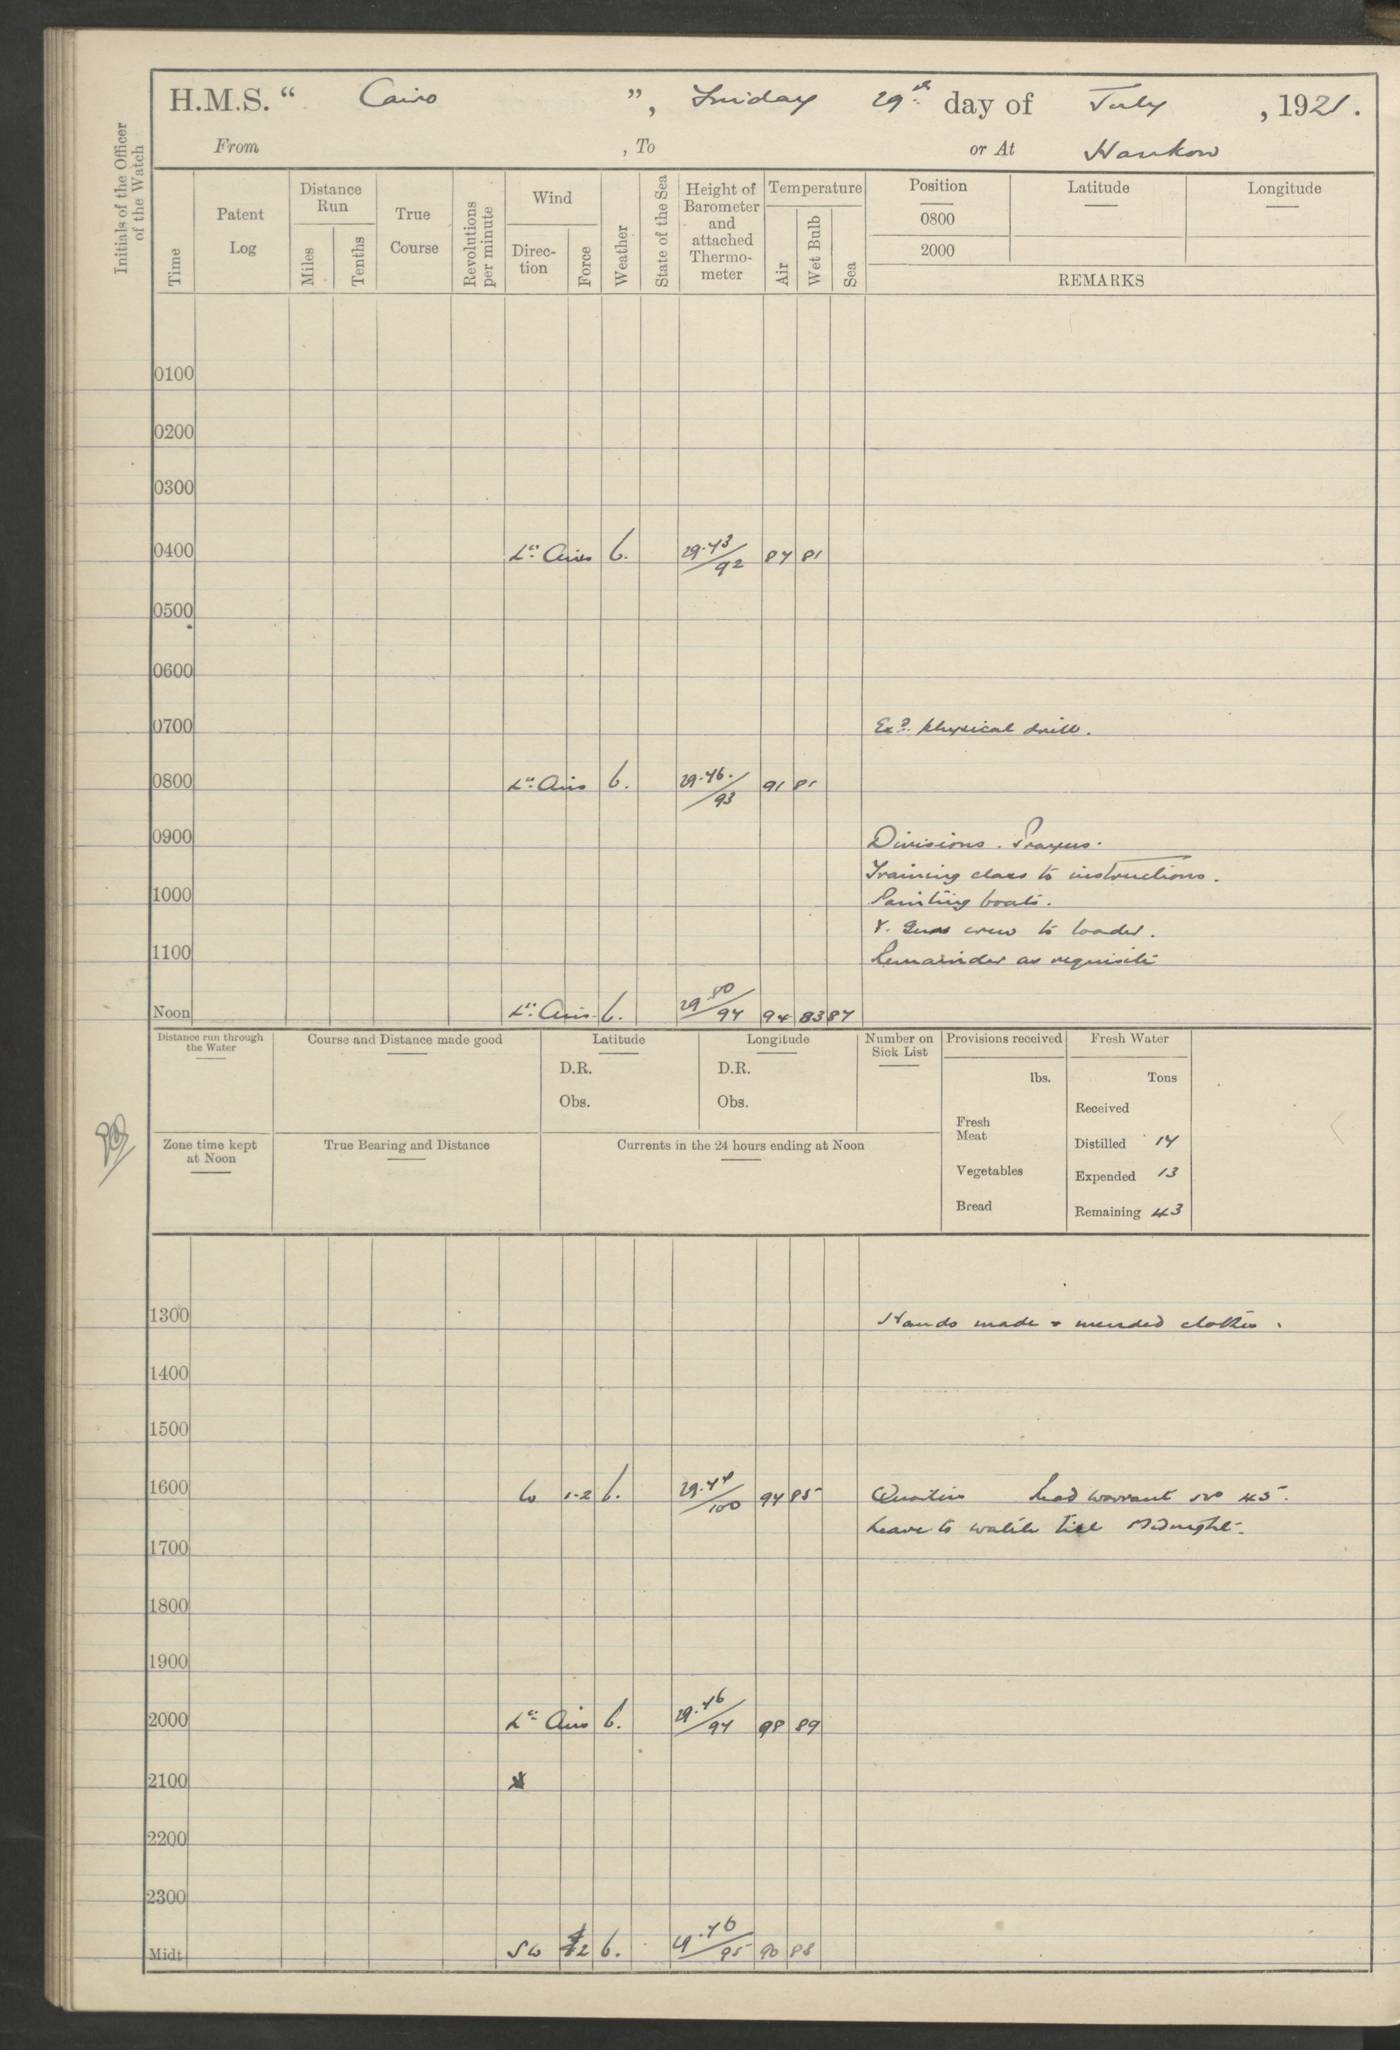 H.M.S. “ Cairo ”, Friday 29th day of July, 1921.
From , To or At Hankow
Initials of the Officer of the Watch
Time
Patent Log
Distance Run
Miles
Tenths
True Course
Revolutions per minute
Wind
Direc-tion
Force
Weather
State of the Sea
Height of Barometer and attached Thermo-meter
Temperature
Air
Wet Bulb
Sea
Position Latitude Longitude
0800
2000
REMARKS
0100
0200
0300
0400 Lt. Airs b. 29.43/92 87 81
0500
0600
0700 Exd. physical drill.
0800 Lt. Airs b. 29.46./93 91 81
0900 Divisions. Prayers.
Training class to instructions.
1000 Painting boats.
Guns crew to loader.
1100 Remainder as requisite
Noon Lt. Airs b. 29.50/94 94 83 87
Distance run through the Water
Course and Distance made good
Latitude
D.R.
Obs.
Longitude
D.R.
Obs.
Number on Sick List
Provisions received
lbs.
Fresh Meat
Vegetables
Bread
Fresh Water
Tons
Received
Distilled 14
Expended 13
Remaining 43
Zone time kept at Noon
True Bearing and Distance
Currents in the 24 hours ending at Noon
1300 Hands made & mended clothes.
1400
1500
1600 W 1-2 b. 29.44/100 97 85 Quarters Read warrant no 45.
Leave to watch till Midnight.
1700
1800
1900
2000 Lt. Airs b. 29.46/97 98 89
2100
2200
2300
Midt. SW 2 b. 29.46/95 90 88